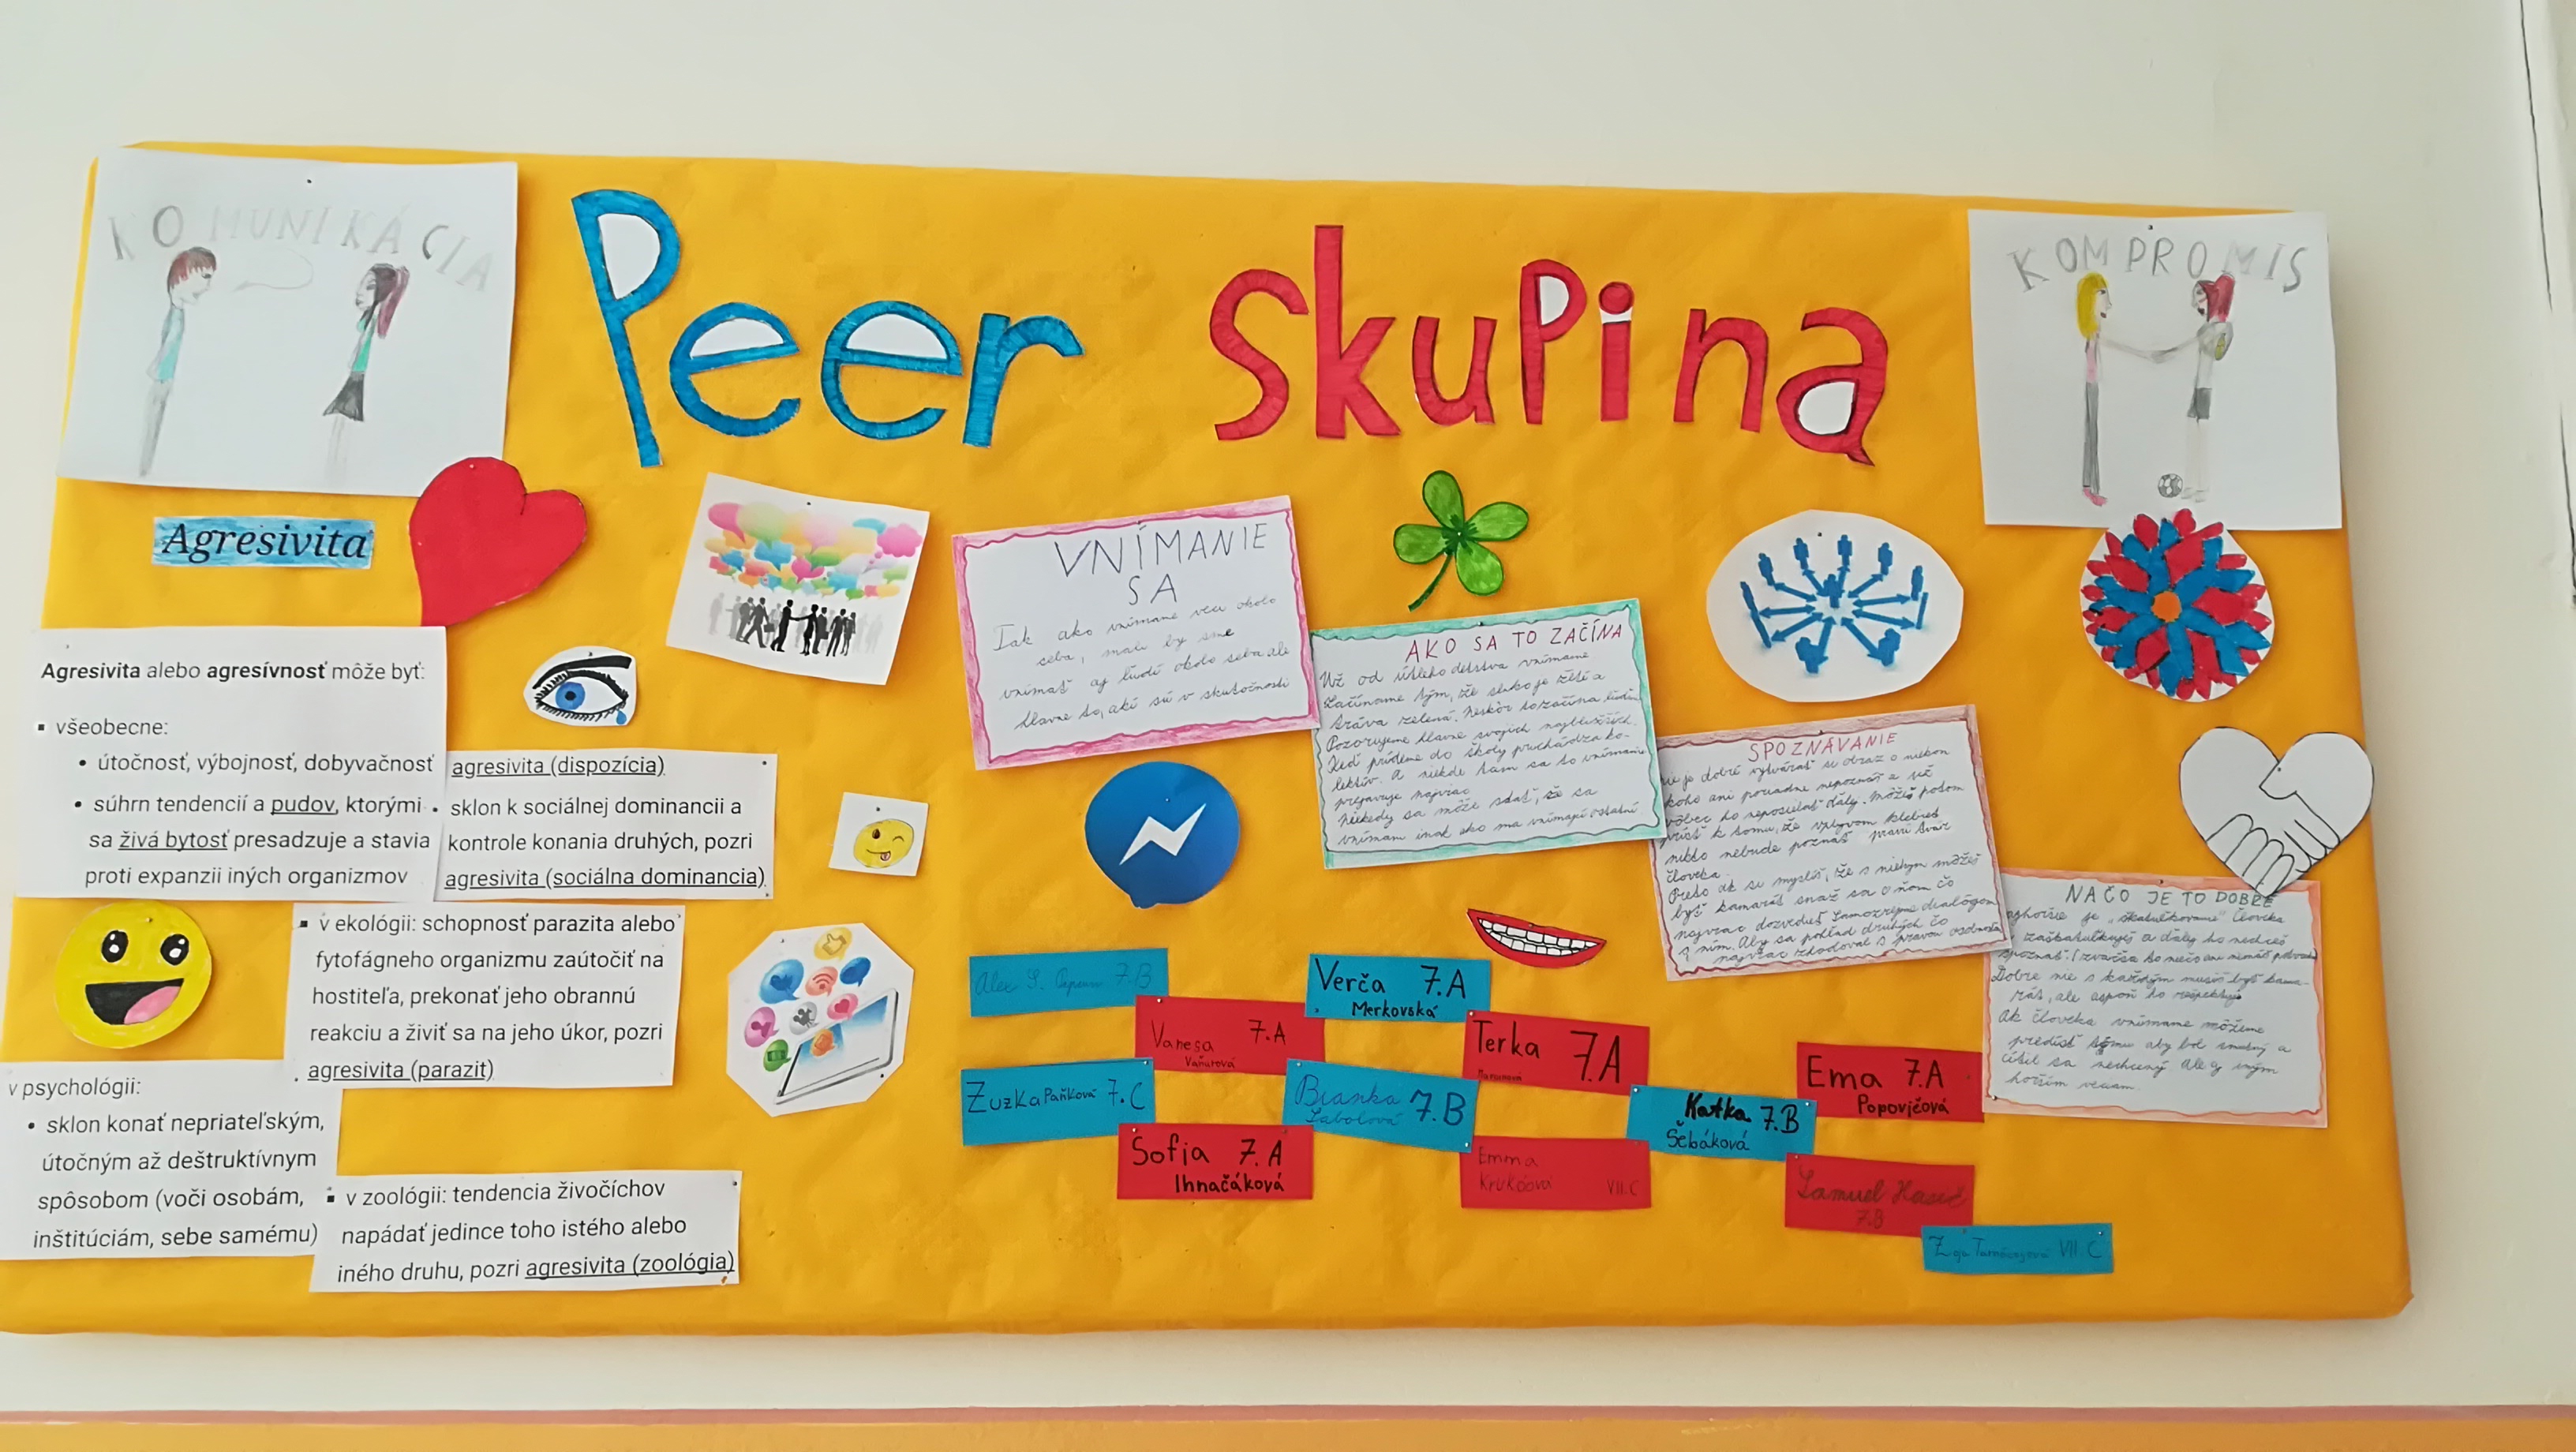 KOMUNIKÁCIA
Peer Skupina
KOMPROMIS
Agresivita
Agresivita alebo agresívnosť môže byť:
▪ všeobecne:
• útočnosť, výbojnosť, dobyvačnosť
• súhrn tendencií a pudov, ktorými
sa živá bytosť presadzuje a stavia
proti expanzii iných organizmov
agresivita (dispozícia)
• sklon k sociálnej dominancii a
kontrole konania druhých, pozri
agresivita (sociálna dominancia)
▪ v ekológii: schopnosť parazita alebo
fytofágneho organizmu zaútočiť na
hostiteľa, prekonať jeho obrannú
reakciu a živiť sa na jeho úkor, pozri
agresivita (parazit)
v psychológii:
• sklon konať nepriateľským,
útočným až deštruktívnym
spôsobom (voči osobám,
inštitúciám, sebe samému)
▪ v zoológii: tendencia živočíchov
napádať jedince toho istého alebo
iného druhu, pozri agresivita (zoológia)
VNÍMANIE
SA
Tak ako vnímame veci okolo
seba, mali by sme
vnímať aj ľudí okolo seba ale
hlavne to, akí sú v skutočnosti
AKO SA TO ZAČÍNA
Už od útleho detstva vnímame
Začíname tým, že slnko je žlté a
tráva zelená. Neskôr to začína ľuďmi
Pozorujeme hlavne svojich najbližších.
Keď prídeme do školy prichádza ko-
lektív. A niekde tam sa to vnímanie
prejavuje najviac
Niekedy sa môže stať, že sa
vnímam inak ako ma vnímajú ostatní
SPOZNÁVANIE
nie je dobré vytvárať si obraz o niekom
koho ani poriadne nepoznáš a už
vôbec to neposielať ďalej. Môžeš potom
prísť k tomu, že vplyvom klebiet
nikto nebude poznať pravú tvár
človeka.
Preto ak si myslíš, že s niekym môžeš
byť kamarát snaž sa o ňom čo
najviac dozvedieť samozrejme dialógom
s ním. Aby sa pohľad druhých čo
najviac zhodoval s pravou osobnosťou
NAČO JE TO DOBRÉ
najhoršie je "škatuľkovanie" človeka
zaškatuľkuješ a ďalej ho nechceš
spoznať.
Dobre nie s každým musíš byť kama-
rát, ale aspoň ho rešpektuj
Ak človeka vnímame môžeme
predísť tomu aby bol smutný a
cítil sa nechcený Ale aj iným
horším veciam.
Alex S. 7.B
Verča 7.A
Merkovská
Vanesa 7.A
Vaňurová
Terka 7.A
Ema 7.A
Popovičová
Zuzka Paňková 7.C
Bianka 7.B
Labolová
Katka 7.B
Šebáková
Sofia 7.A
Ihnačáková
Emma
VII.C
Samuel
7.B
VII.C